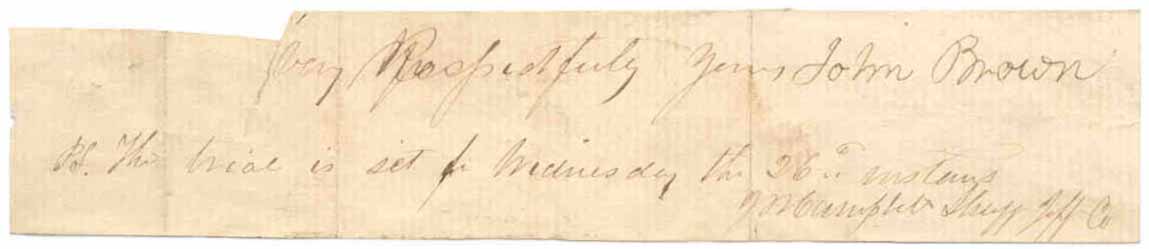 Very Respectfuly Yours John Brown
P.S. The trial is set for Wednesday the 26th instant
J W Campbell Sheff Jeff Co